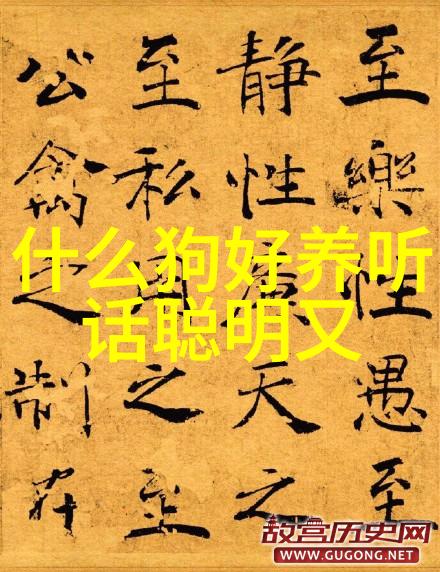 至樂性愚至
静性廉天之
至私用之至
公禽之制在
什么狗好养听
话聪明又
故宫历史网
WWW.GUGONG.NET